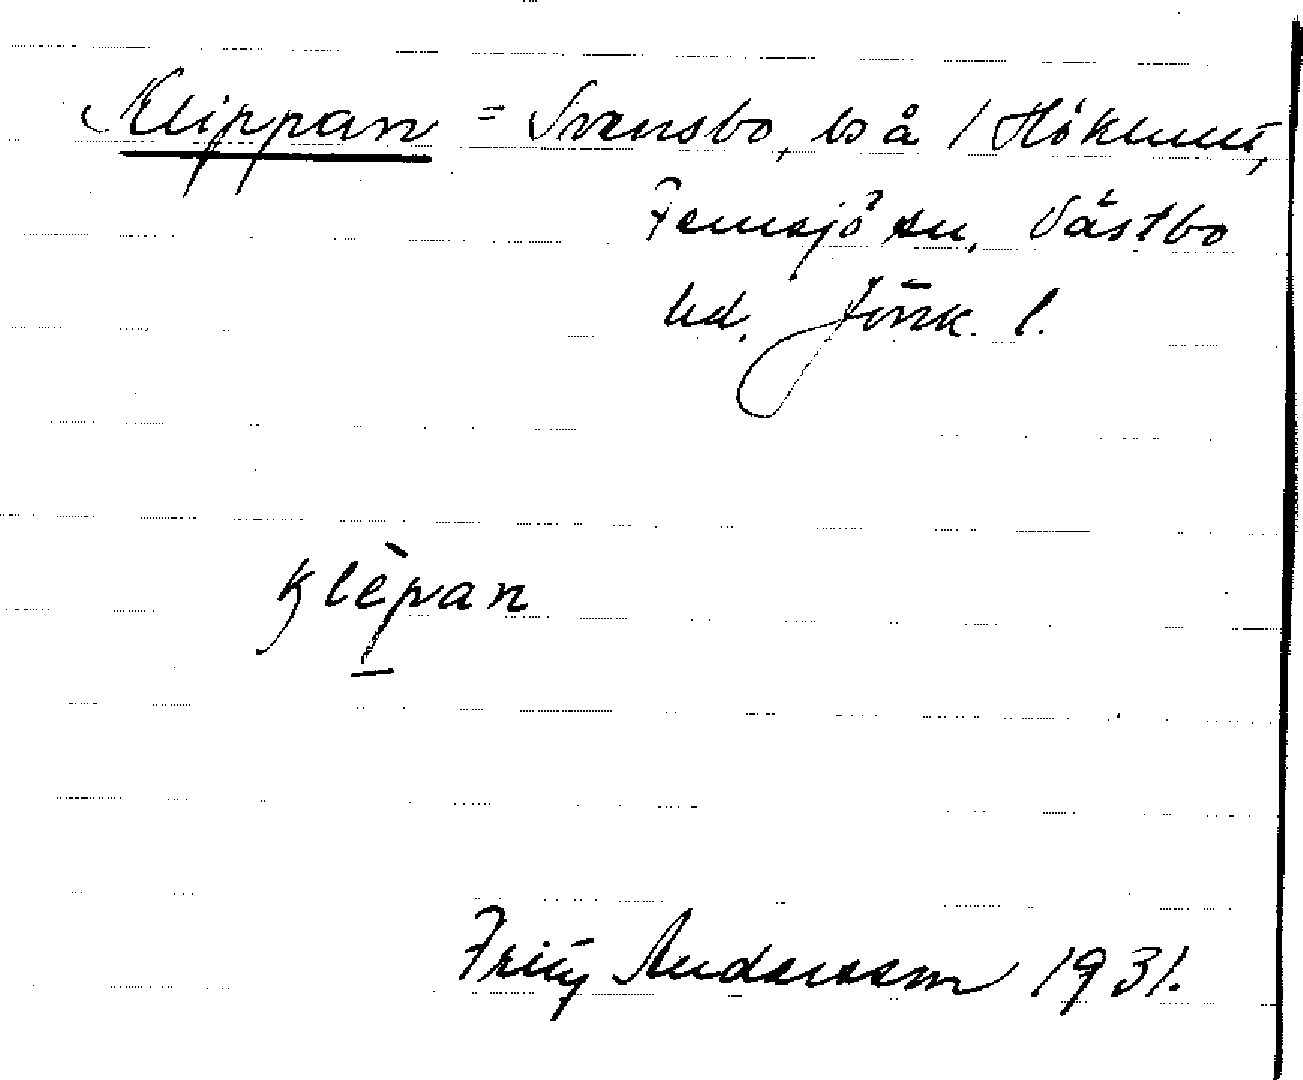 Klippan = Svansbo, ls å 1 Höklund,
Femsjö sn, Västbo
hd. Jönk. l.
Klèpan
Frity Andersson 1931.